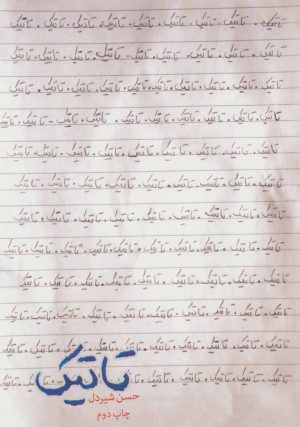 تاتیک . تاتیک . تاتیک . تاتیک . تاتیک . تاتیک . تاتیک . تاتیک
تاتیک . تاتیک . تاتیک . تاتیک . تاتیک . تاتیک . تاتیک . تاتیک
تاتیک . تاتیک . تاتیک . تاتیک . تاتیک . تاتیک . تاتیک . تاتیک
تاتیک . تاتیک . تاتیک . تاتیک . تاتیک . تاتیک . تاتیک . تاتیک
تاتیک . تاتیک . تاتیک . تاتیک . تاتیک . تاتیک . تاتیک . تاتیک
تاتیک . تاتیک . تاتیک . تاتیک . تاتیک . تاتیک . تاتیک . تاتیک
تاتیک . تاتیک . تاتیک . تاتیک . تاتیک . تاتیک . تاتیک . تاتیک
تاتیک . تاتیک . تاتیک . تاتیک . تاتیک . تاتیک . تاتیک . تاتیک
تاتیک . تاتیک . تاتیک . تاتیک . تاتیک . تاتیک . تاتیک . تاتیک
تاتیک . تاتیک . تاتیک . تاتیک . تاتیک . تاتیک . تاتیک . تاتیک
تاتیک . تاتیک . تاتیک . تاتیک . تاتیک . تاتیک . تاتیک . تاتیک
تاتیک . تاتیک . تاتیک . تاتیک . تاتیک
تاتیک
حسن شیردل
چاپ دوم